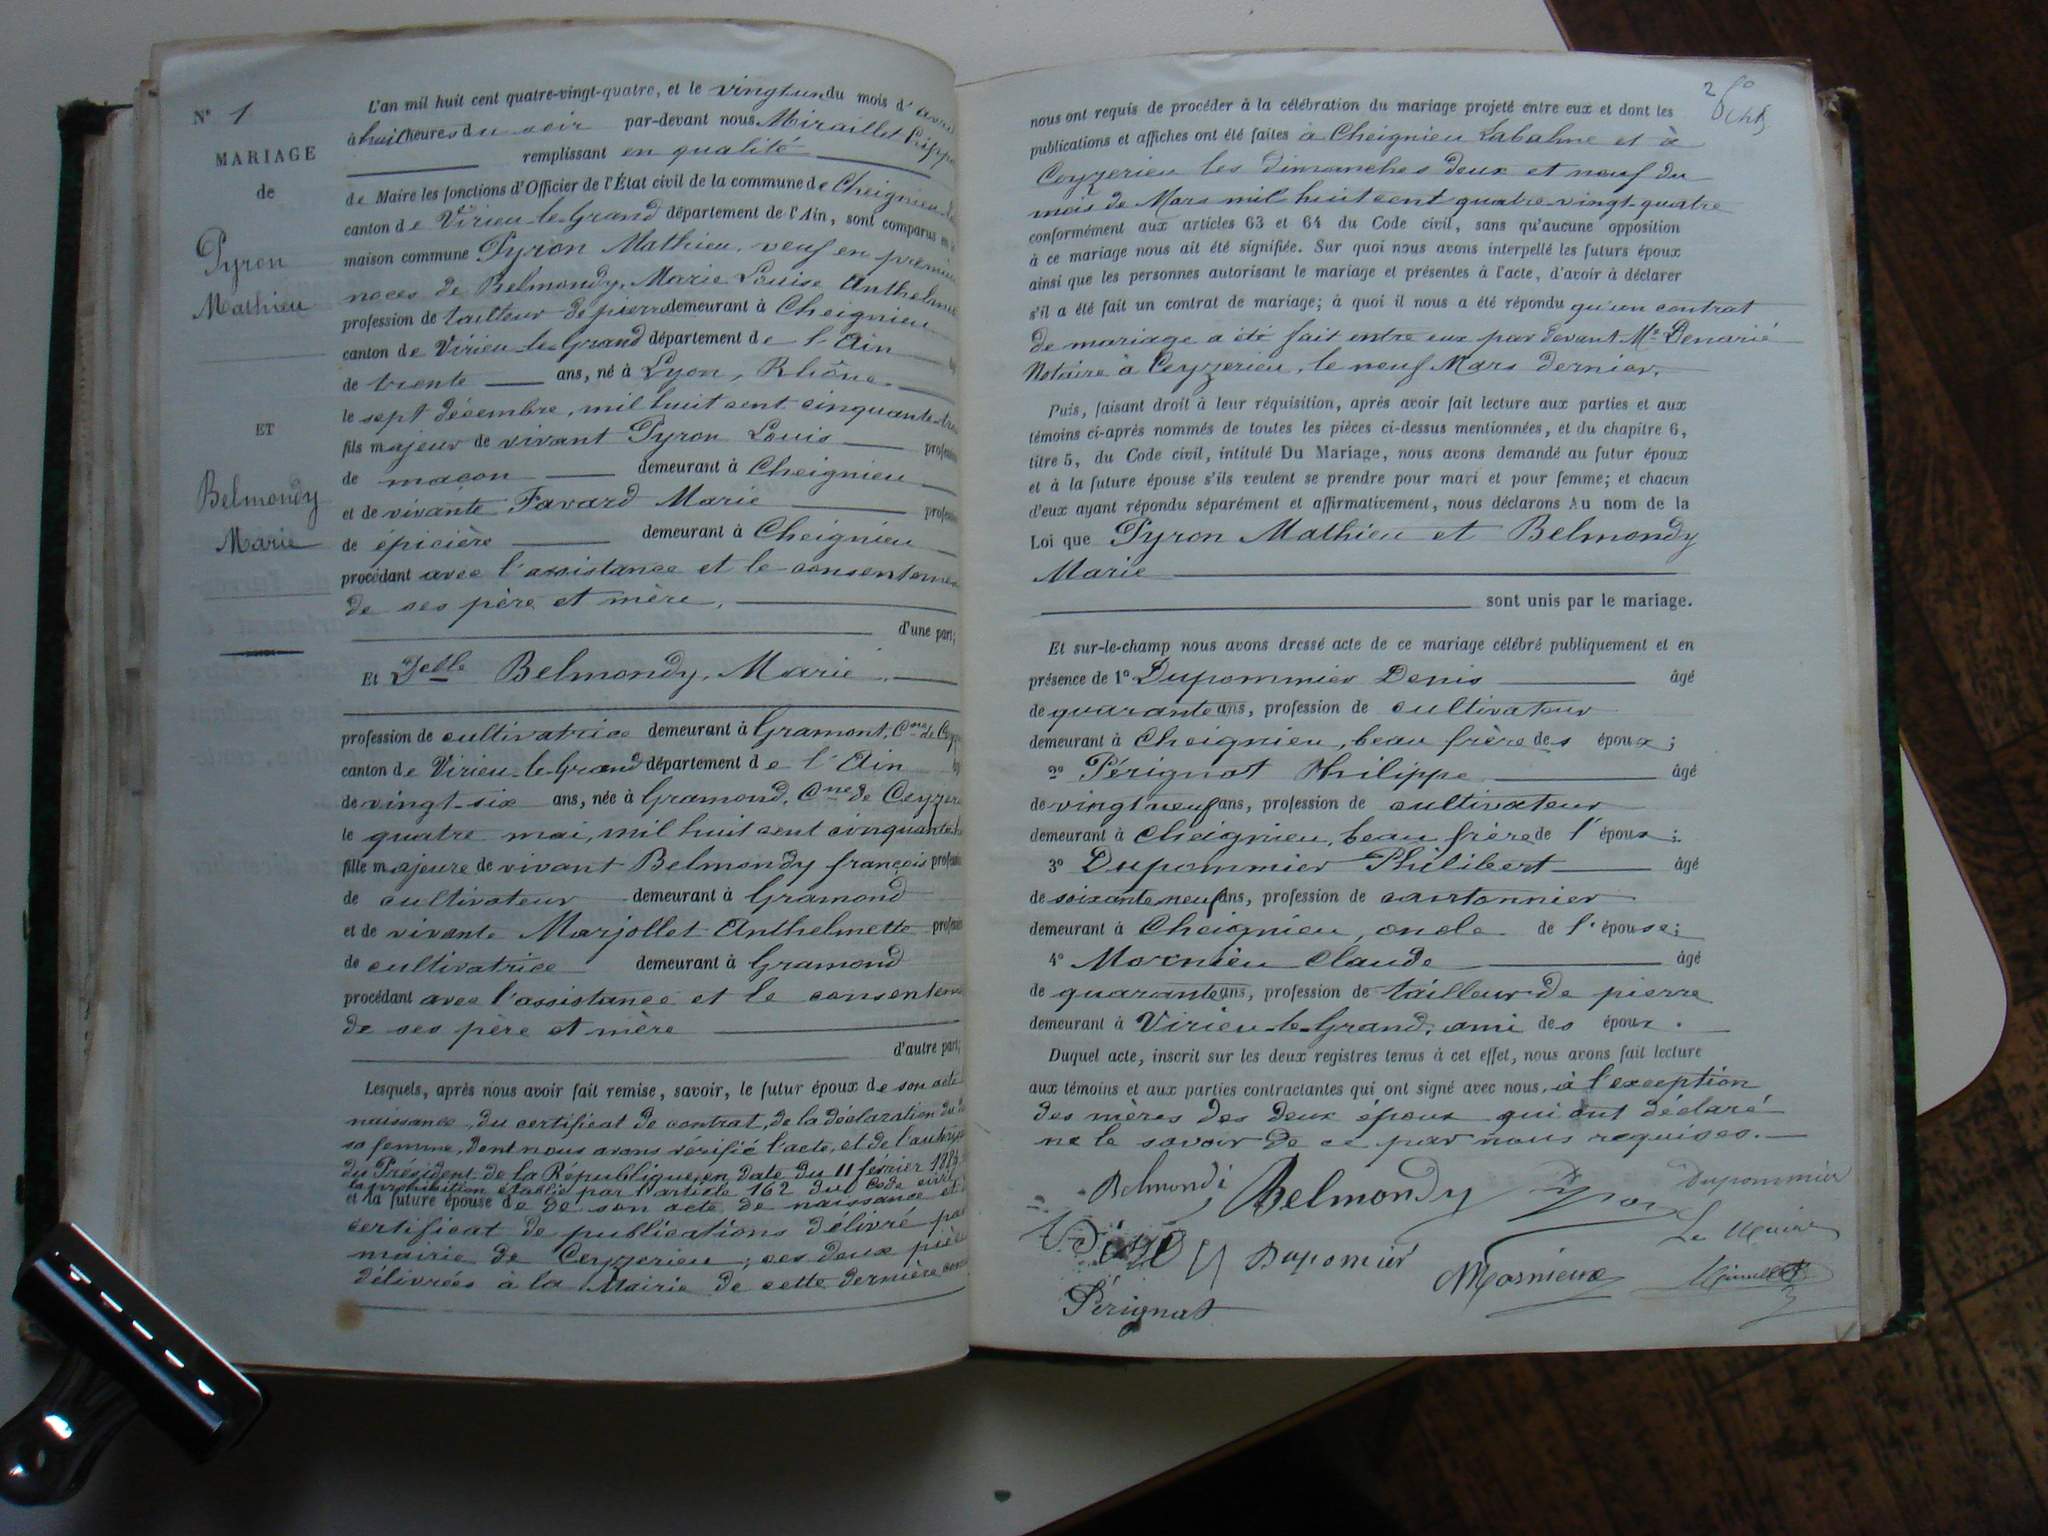 N° 1
MARIAGE
de
Pyron
Mathieu
ET
Belmondy
Marie
L'an mil huit cent quatre-vingt-quatre, et le vingt un du mois d'avril
à huit heures du soir par-devant nous Miraillet
remplissant en qualité
de Maire les fonctions d'Officier de l'État civil de la commune de Cheignieu
canton de Virieu-le-Grand département de l'Ain, sont comparus en la
maison commune Pyron Mathieu, veuf en premières
noces de Belmondy, Marie Louise Anthelmette
profession de tailleur de pierre demeurant à Cheignieu
canton de Virieu-le-Grand département de l'Ain
de trente ans, né à Lyon, Rhône.
le sept décembre, mil huit cent cinquante-trois
fils majeur de vivant Pyron Louis profession
de maçon demeurant à Cheignieu
et de vivante Favard Marie profession
de épicière demeurant à Cheignieu
procédant avec l'assistance et le consentement
de ses père et mère,
d'une part;
Et Delle Belmondy, Marie,
profession de cultivatrice demeurant à Gramont, Cne de
canton de Virieu-le-Grand département de l'Ain
de vingt-six ans, née à Gramond, Cne de Ceyzerieu
le quatre mai, mil huit cent cinquante
fille majeure de vivant Belmondy françois profession
de cultivateur demeurant à Gramond
et de vivante Marjollet Anthelmette profession
de cultivatrice demeurant à Gramond
procédant avec l'assistance et le consentement
de ses père et mère
d'autre part;
Lesquels, après nous avoir fait remise, savoir, le futur époux de son acte
naissance, du certificat de contrat, de la déclaration du
sa femme, dont nous avons vérifié l'acte, et de l'autorisation
du Président de la République, en date du 11 février 1884
la prohibition établie par l'article 162 du Code civil
et la future épouse de de son acte de naissance et
certificat de publications délivré par
mairie de Ceyzerieu; ces deux pièces
délivrées à la Mairie de cette dernière
nous ont requis de procéder à la célébration du mariage projeté entre eux et dont les
publications et affiches ont été faites à Cheignieu Labalme et à
Ceyzerieu les dimanches deux et neuf du
mois de Mars mil huit cent quatre-vingt-quatre
conformément aux articles 63 et 64 du Code civil, sans qu'aucune opposition
à ce mariage nous ait été signifiée. Sur quoi nous avons interpellé les futurs époux
ainsi que les personnes autorisant le mariage et présentes à l'acte, d'avoir à déclarer
s'il a été fait un contrat de mariage; à quoi il nous a été répondu qu'un contrat
de mariage a été fait entre eux par devant Me Benarié
Notaire à Ceyzerieu, le neuf Mars dernier.
Puis, faisant droit à leur réquisition, après avoir fait lecture aux parties et aux
témoins ci-après nommés de toutes les pièces ci-dessus mentionnées, et du chapitre 6,
titre 5, du Code civil, intitulé Du Mariage, nous avons demandé au futur époux
et à la future épouse s'ils veulent se prendre pour mari et pour femme; et chacun
d'eux ayant répondu séparément et affirmativement, nous déclarons Au nom de la
Loi que Pyron Mathieu et Belmondy
Marie
sont unis par le mariage.
Et sur-le-champ nous avons dressé acte de ce mariage célébré publiquement et en
présence de 1° Dupommier Denis âgé
de quarante ans, profession de cultivateur
demeurant à Cheignieu, beau frère des époux;
2° Pérignat Philippe âgé
de vingt neuf ans, profession de cultivateur
demeurant à Cheignieu, beau frère de l'époux;
3° Dupommier Philibert âgé
de soixante neuf ans, profession de cantonnier
demeurant à Cheignieu, oncle de l'épouse;
4° Mornieu Claude âgé
de quarante ans, profession de tailleur de pierre
demeurant à Virieu-le-Grand, ami des époux.
Duquel acte, inscrit sur les deux registres tenus à cet effet, nous avons fait lecture
aux témoins et aux parties contractantes qui ont signé avec nous, à l'exception
des mères des deux époux qui ont déclaré
ne le savoir de ce par nous requises.
Belmondi Belmondy Pyron Dupommier
Le Maire
Dupomier Mornieux Miraillet
Pérignat